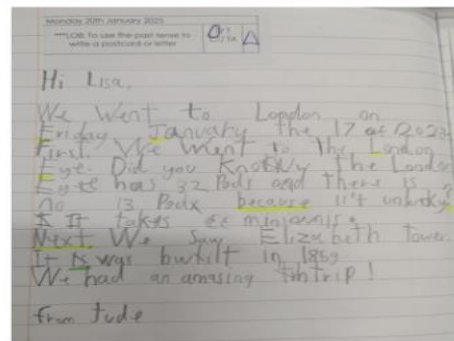 Monday 20th January 2025
LOB: To use the past tense to
write a postcard or letter
Hi Lisa,
We went to London on
Friday January the 17 of 2023
First. We went to The London
Eye. Did you know The London
Eye has 32 Pods and there is
no 13 Podx because it's unlucky?
It takes minionis.
Next. We saw Elizabeth tower.
It is was bwtilt in 1859
We had an amasing trip!
from Jude